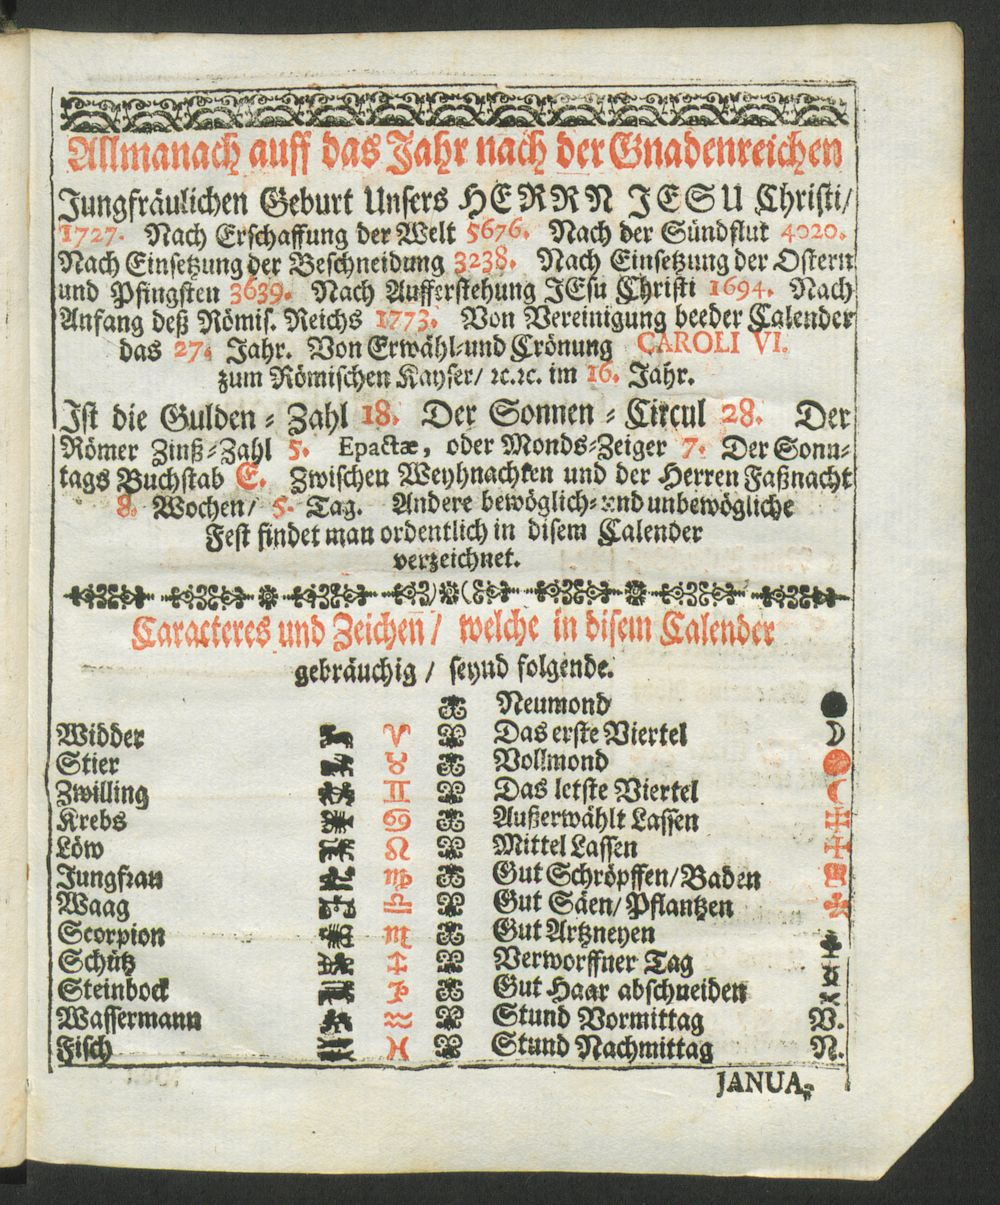 Allmanach auff das Jahr nach der Gnadenreichen
Jungfräulichen Geburt Unsers HERRN JESU Christi/
1727. Nach Erschaffung der Welt 5676. Nach der Sündflut 4020.
Nach Einsetzung der Beschneidung 3238. Nach Einsetzung der Ostern
und Pfingsten 3639. Nach Aufferstehung JEsu Christi 1694. Nach
Anfang deß Römis. Reichs 1773. Von Vereinigung beeder Calender
das 27. Jahr. Von Erwähl-und Crönung CAROLI VI.
zum Römischen Kayser/ ꝛc.ꝛc. im 16. Jahr.
Ist die Gulden-Zahl 18. Der Sonnen-Circul 28. Der
Römer Zinß-Zahl 5. Epactæ, oder Monds-Zeiger 7. Der Sonn-
tags Buchstab E. Zwischen Weyhnachten und der Herren Faßnacht
8. Wochen/ 5. Tag. Andere bewöglich-und unbewögliche
Fest findet man ordentlich in disem Calender
verzeichnet.
Caracteres und Zeichen/ welche in disem Calender
gebräuchig/ seynd folgende.
Neumond ●
Widder ♈ Das erste Viertel ☽
Stier ♉ Vollmond
Zwilling ♊ Das letste Viertel ☾
Krebs ♋ Außerwählt Lassen
Löw ♌ Mittel Lassen
Jungfrau ♍ Gut Schröpffen/Baden
Waag ♎ Gut Säen/Pflantzen
Scorpion ♏ Gut Artzneyen
Schütz ♐ Verworffner Tag
Steinbock ♑ Gut Haar abschneiden
Wassermann ♒ Stund Vormittag V.
Fisch ♓ Stund Nachmittag N.
JANUA-